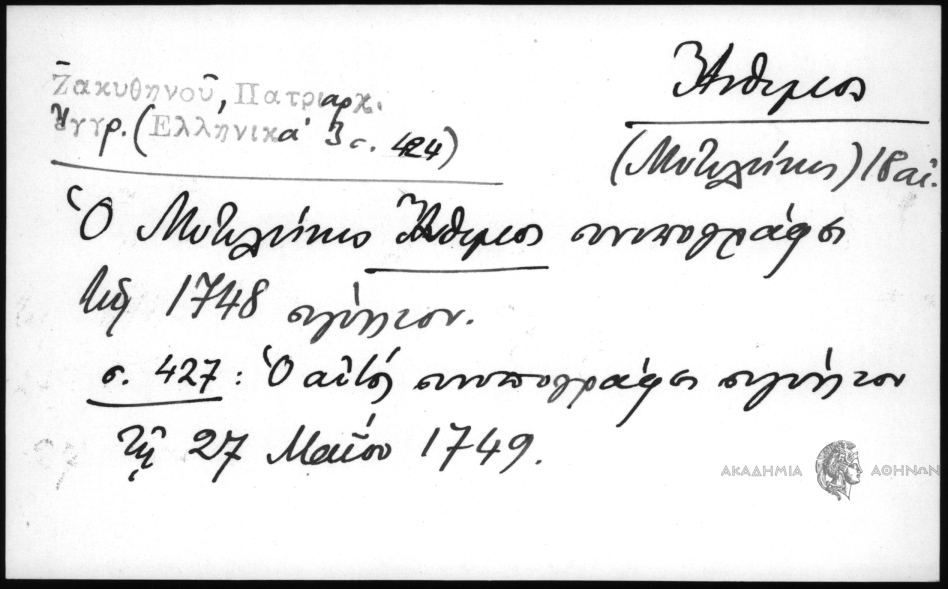 Ζακυθηνοῦ, Πατριαρχ.
ἔγγρ. (Ἑλληνικα' 3 σ. 424)
Ἄνθιμος
(Μυτιλήνης) 18 αἰ.
Ὁ Μυτιλήνης Ἄνθιμος συνυπογράφει
τῷ 1748 σιγίλλιον.
σ. 427: Ὁ αὐτός συνυπογράφει σιγίλλιον
τῇ 27 Μαΐου 1749.
ΑΚΑΔΗΜΙΑ ΑΘΗΝΩΝ